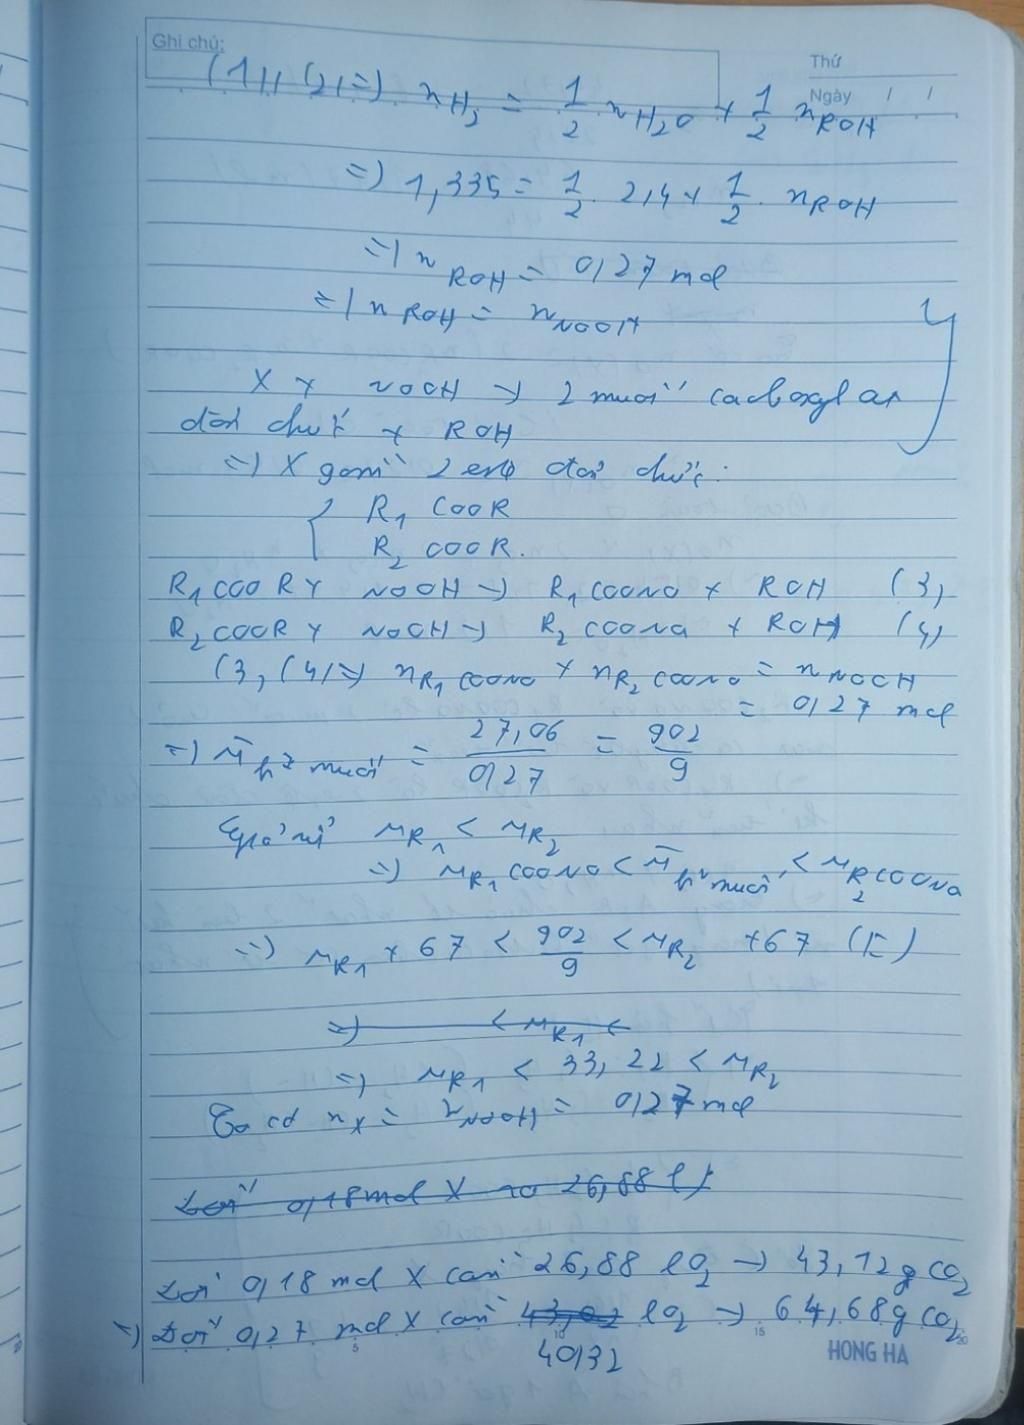 Ghi chú:
Thứ
Ngày / /
(1), (2) => nH2 = 1/2 nH2O + 1/2 nROH
=> 1,335 = 1/2 . 2,4 + 1/2 . nROH
=> nROH = 0,27 mol
=> nROH = nNaOH
X + NaOH -> 2 muối cacboxylat
đơn chức + ROH
=> X gồm 2 este đơn chức:
{ R1 COOR
R2 COOR.
R1COOR + NaOH -> R1COONa + ROH (3)
R2COOR + NaOH -> R2COONa + ROH (4)
(3), (4) => nR1COONa + nR2COONa = nNaOH
= 0,27 mol
=> M̄h² muối = 27,06/0,27 = 902/9
Giả sử MR1 < MR2
=> MR1COONa < M̄h² muối < MR2COONa
=> MR1 + 67 < 902/9 < MR2 + 67
=> < MR1 <
=> MR1 < 33,22 < MR2
Ta có nX = nNaOH = 0,27 mol
Đốt 0,18 mol X 26,88 l
Đốt 0,18 mol X cần 26,88 l O2 -> 43,12g CO2
=> Đốt 0,27 mol X cần l O2 -> 64,68g CO2
40,32
5 10 15 20
HONG HA